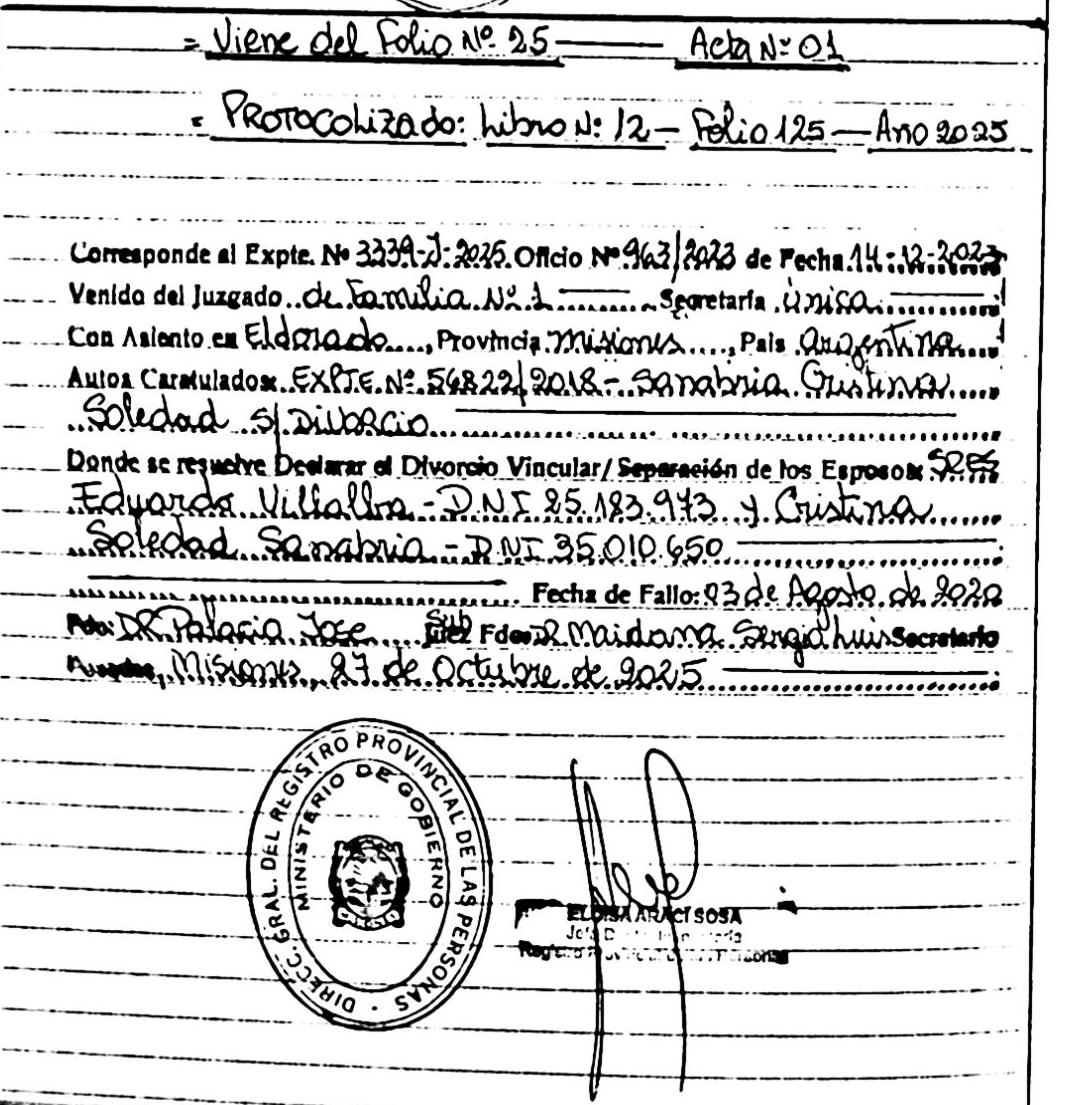 = Viene del Folio Nº 25 —— Acta Nº 01
= PROTOCOLIZADO: Libro Nº 12 — Folio 125 — Año 2025
Corresponde al Expte. Nº 3339-J-2025. Oficio Nº 963/2023 de Fecha 14-12-2023
Venido del Juzgado de Familia Nº 1 —— Secretaría Única
Con Asiento en Eldorado, Provincia Misiones, País Argentina
Autos Caratulados: EXPTE. Nº 56822/2018 - Sanabria Cristina
Soledad S/ Divorcio
Donde se resuelve Declarar el Divorcio Vincular/ Separación de los Esposos: SRES
Eduardo Villalba - DNI 25.183.973 y Cristina
Soledad Sanabria - DNI 35.010.650
Fecha de Fallo: 03 de Agosto de 2020
Fdo: DR Palacio Jose Sub Juez Fdo: DR Maidana Sergio Luis Secretario
Misiones, 27 de Octubre de 2025
DIRECC. GRAL. DEL REGISTRO PROVINCIAL DE LAS PERSONAS
MINISTERIO DE GOBIERNO
ELOISA ARACI SOSA